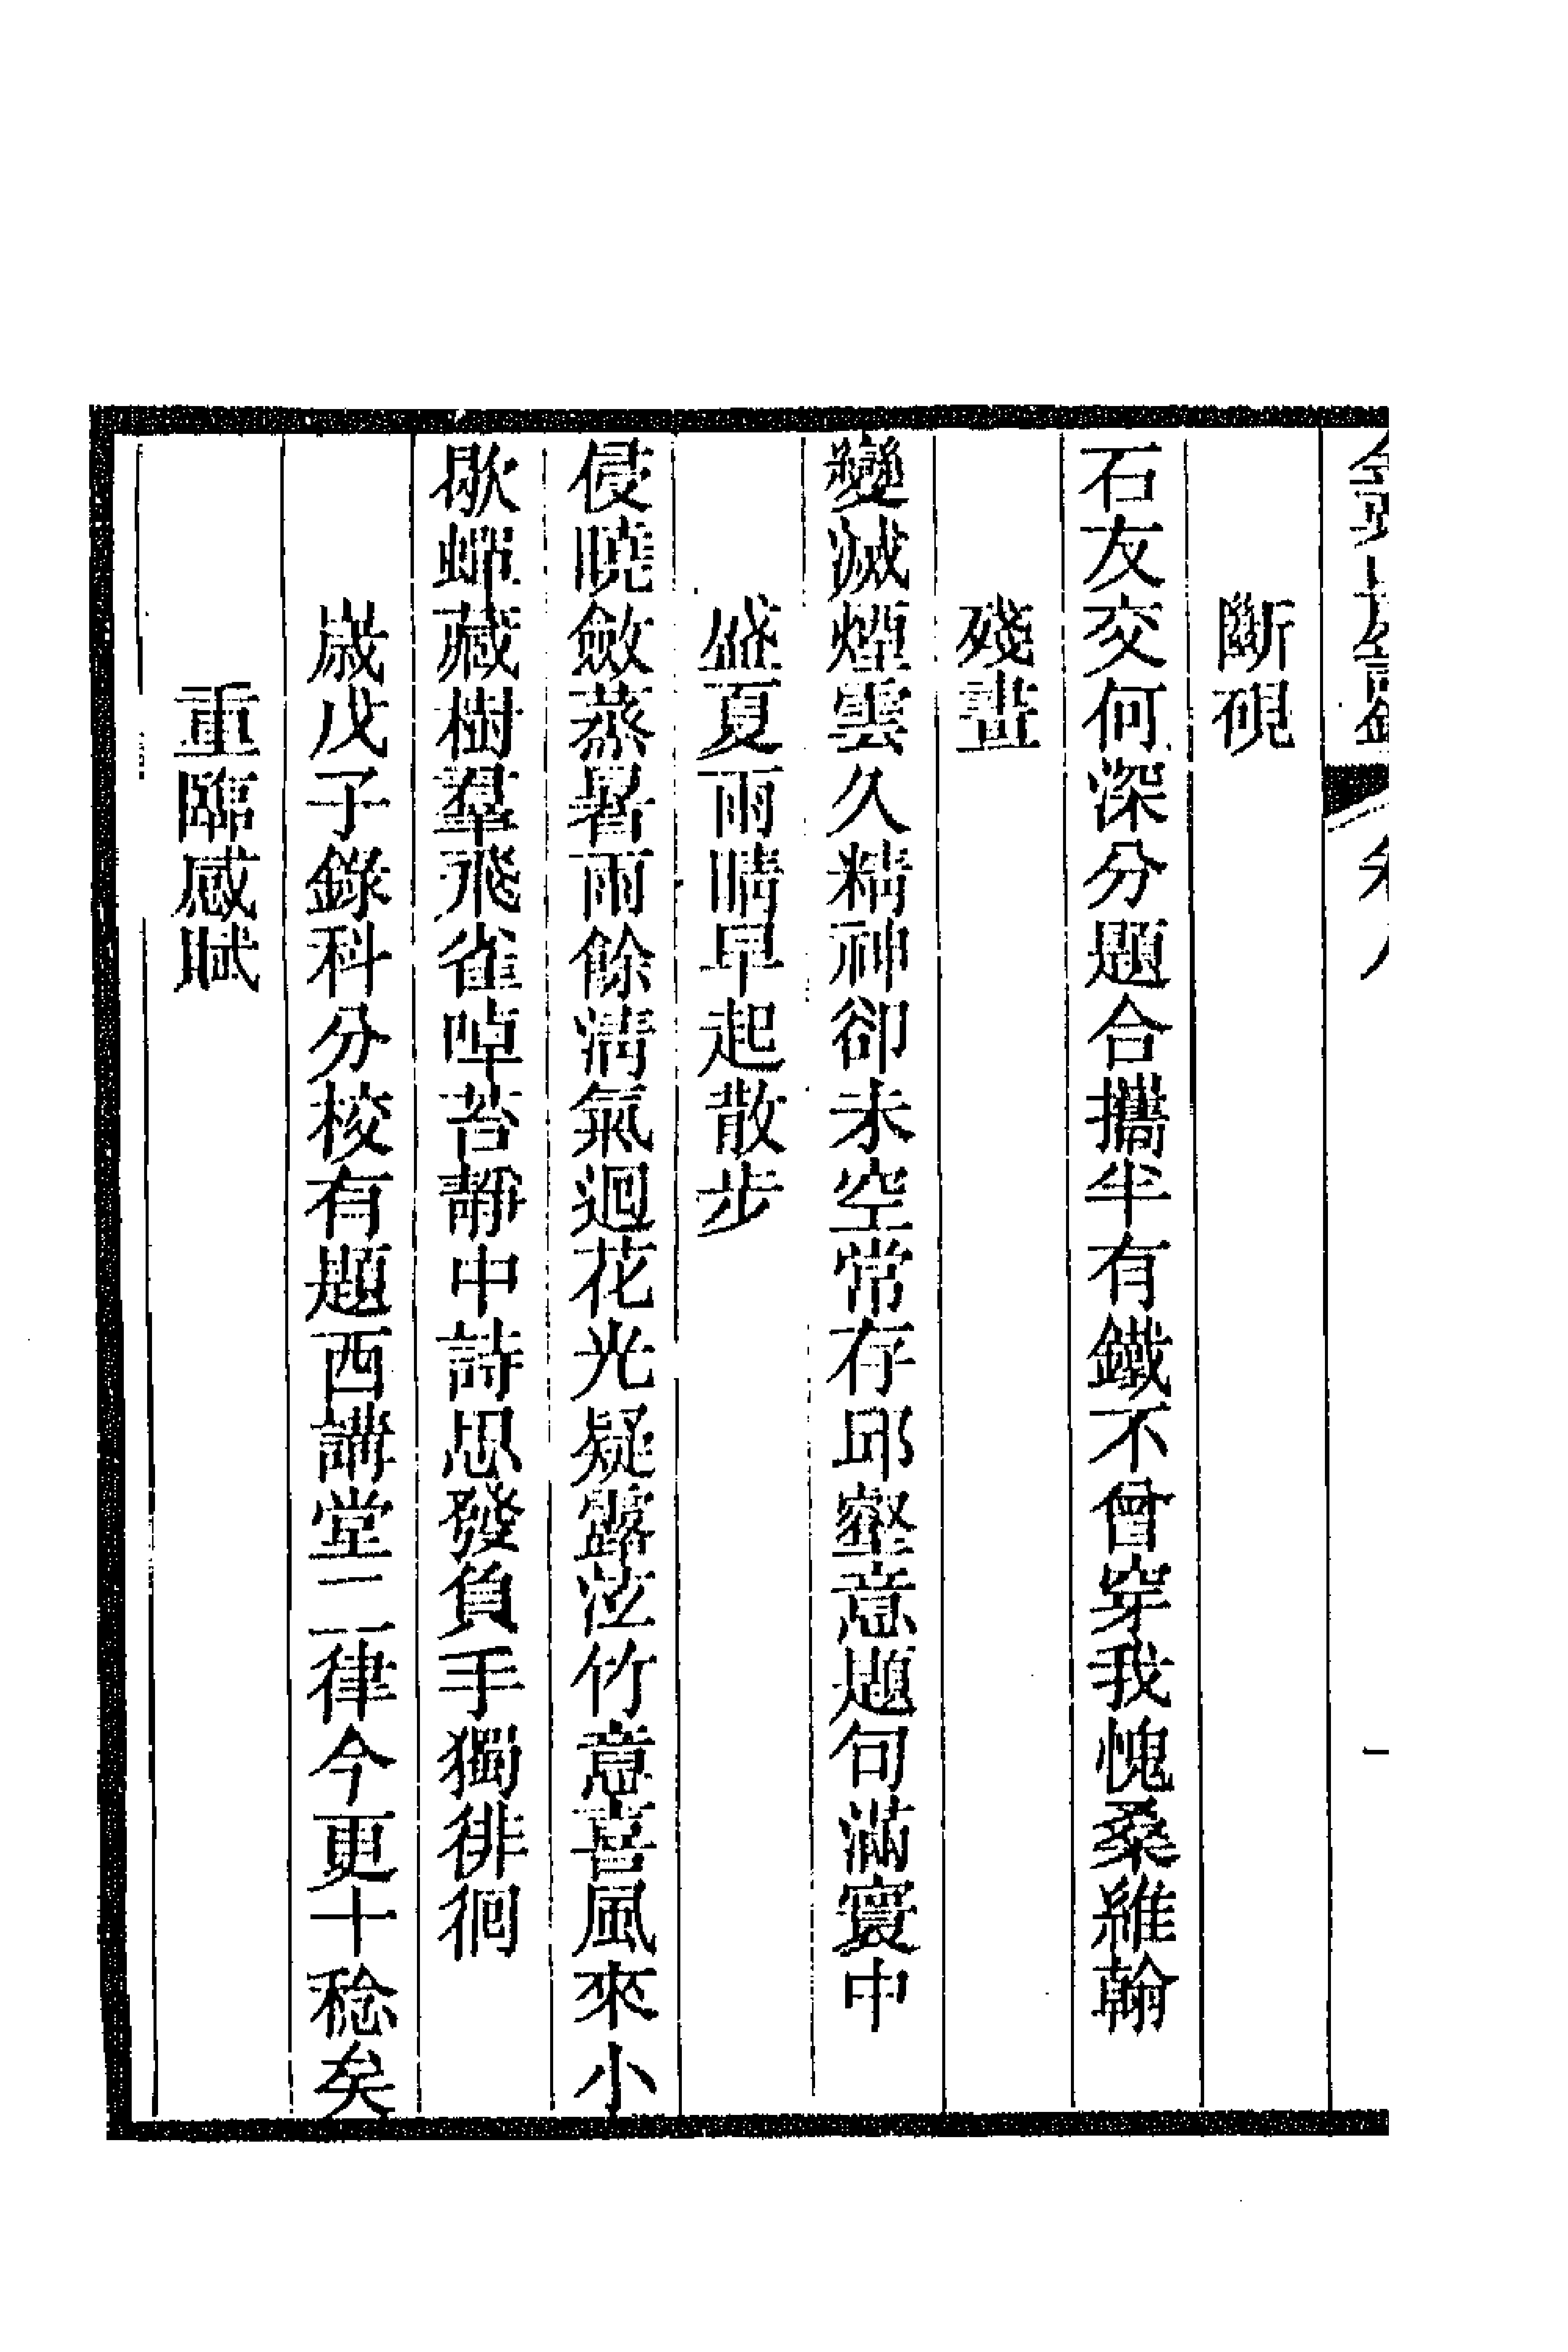 斷硯
石友交何深分題合攜半有鐵不曾穿我愧桑維翰
殘畫
變滅煙雲久精神卻未空常存邱壑意題句滿寰中
盛夏雨晴早起散步
侵曉斂蒸暑雨餘淸氣迴花光疑露泣竹意喜風來小
歇蟬藏樹羣飛雀啅苔靜中詩思發負手獨徘徊
歲戊子錄科分校有題西講堂二律今更十稔矣
重臨感賦